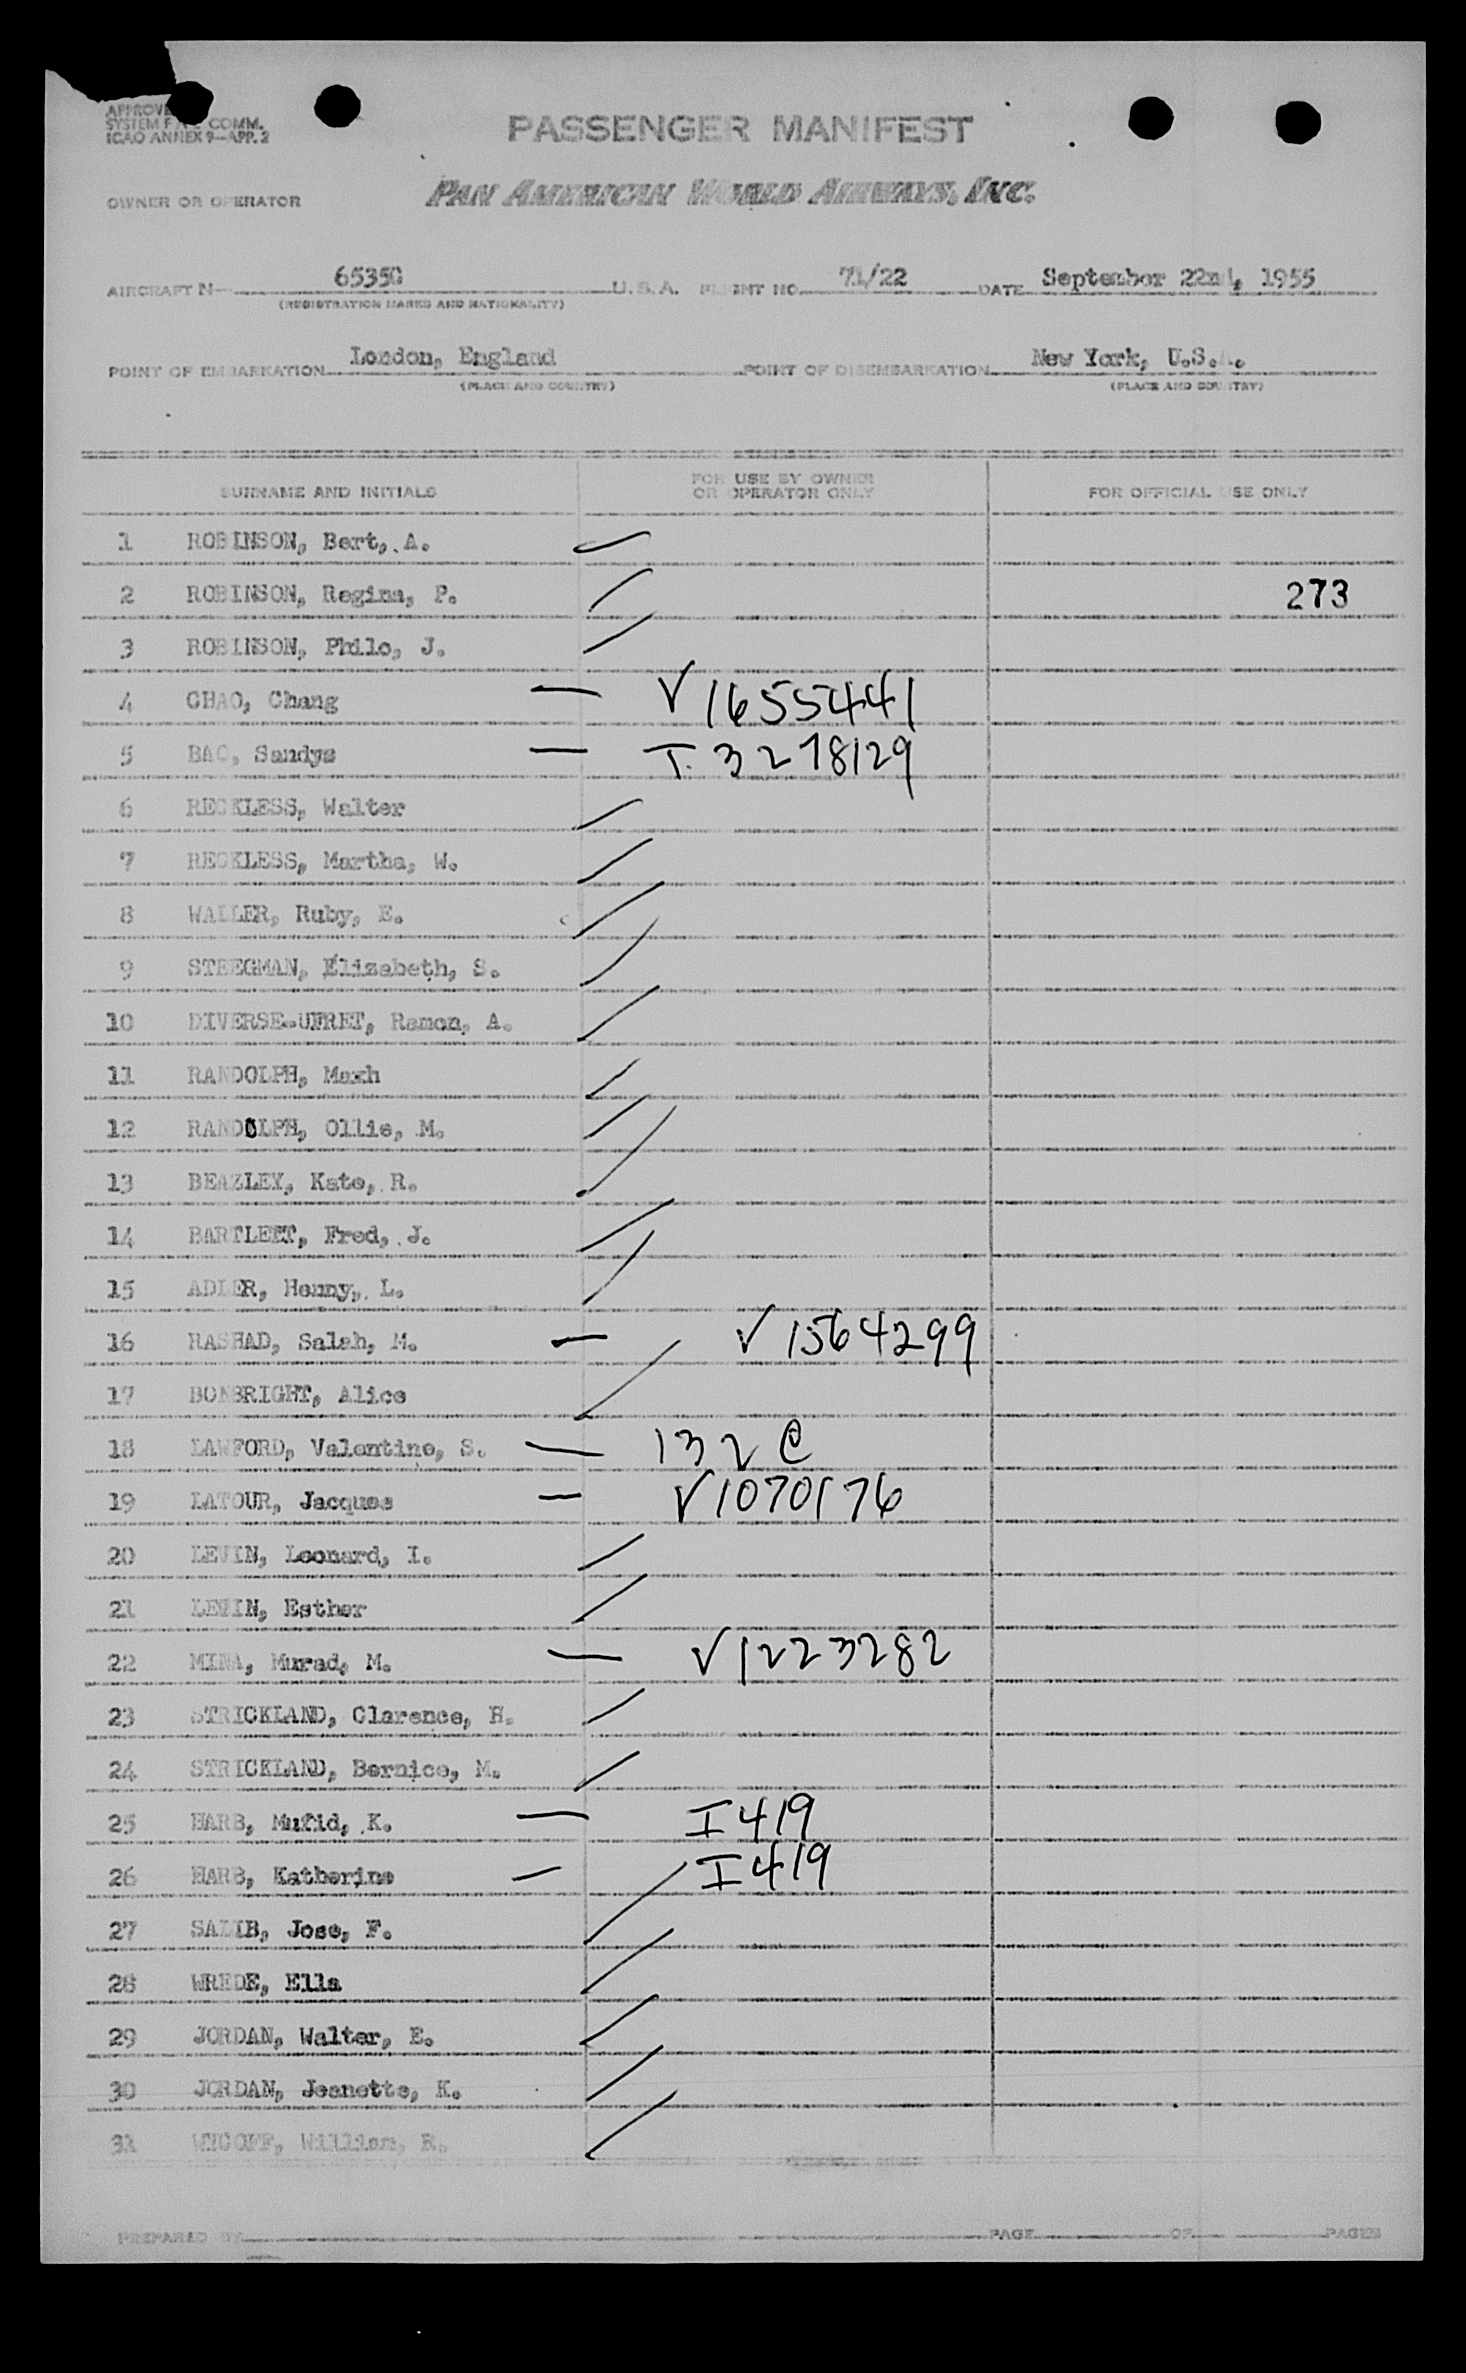 PASSENGER MANIFEST
SYSTEM F COMM.
ICAO ANNEX 9—APP. 2
OWNER OR OPERATOR PAN AMERICAN WORLD AIRWAYS, INC.
AIRCRAFT N— 65350 U.S.A. FLIGHT NO. 71/22 DATE September 22nd, 1955
(REGISTRATION MARKS AND NATIONALITY)
POINT OF EMBARKATION London, England POINT OF DISEMBARKATION New York, U.S.A.
(PLACE AND COUNTRY) (PLACE AND COUNTRY)
SURNAME AND INITIALS FOR USE BY OWNER OR OPERATOR ONLY FOR OFFICIAL USE ONLY
1 ROBINSON, Bert, A.
2 ROBINSON, Regina, P. 273
3 ROBINSON, Philo, J.
4 CHAO, Chang — V1655441
5 BAO, Sandys — I. 3278129
6 RECKLESS, Walter
7 RECKLESS, Martha, W.
8 WALLER, Ruby, E.
9 STEEGMAN, Elizabeth, S.
10 DIVERSE-UFRET, Ramon, A.
11 RANDOLPH, Maxh
12 RANDOLPH, Ollie, M.
13 BEAZLEY, Kate, R.
14 BARTLEET, Fred, J.
15 ADLER, Henny, L.
16 RASHAD, Salah, M. — V1564299
17 BONBRIGHT, Alice
18 LAWFORD, Valentine, S. — 132 C
19 LATOUR, Jacques — V1070176
20 LEVIN, Leonard, I.
21 LEVIN, Esther
22 MINA, Murad, M. — V1223282
23 STRICKLAND, Clarence, H.
24 STRICKLAND, Bernice, M.
25 HARB, Mufid, K. — I419
26 HARB, Katherine — I419
27 SALIB, Jose, F.
28 WREDE, Ella
29 JORDAN, Walter, E.
30 JORDAN, Jeanette, K.
31 WICOFF, William, R.
PREPARED BY PAGE OF PAGES